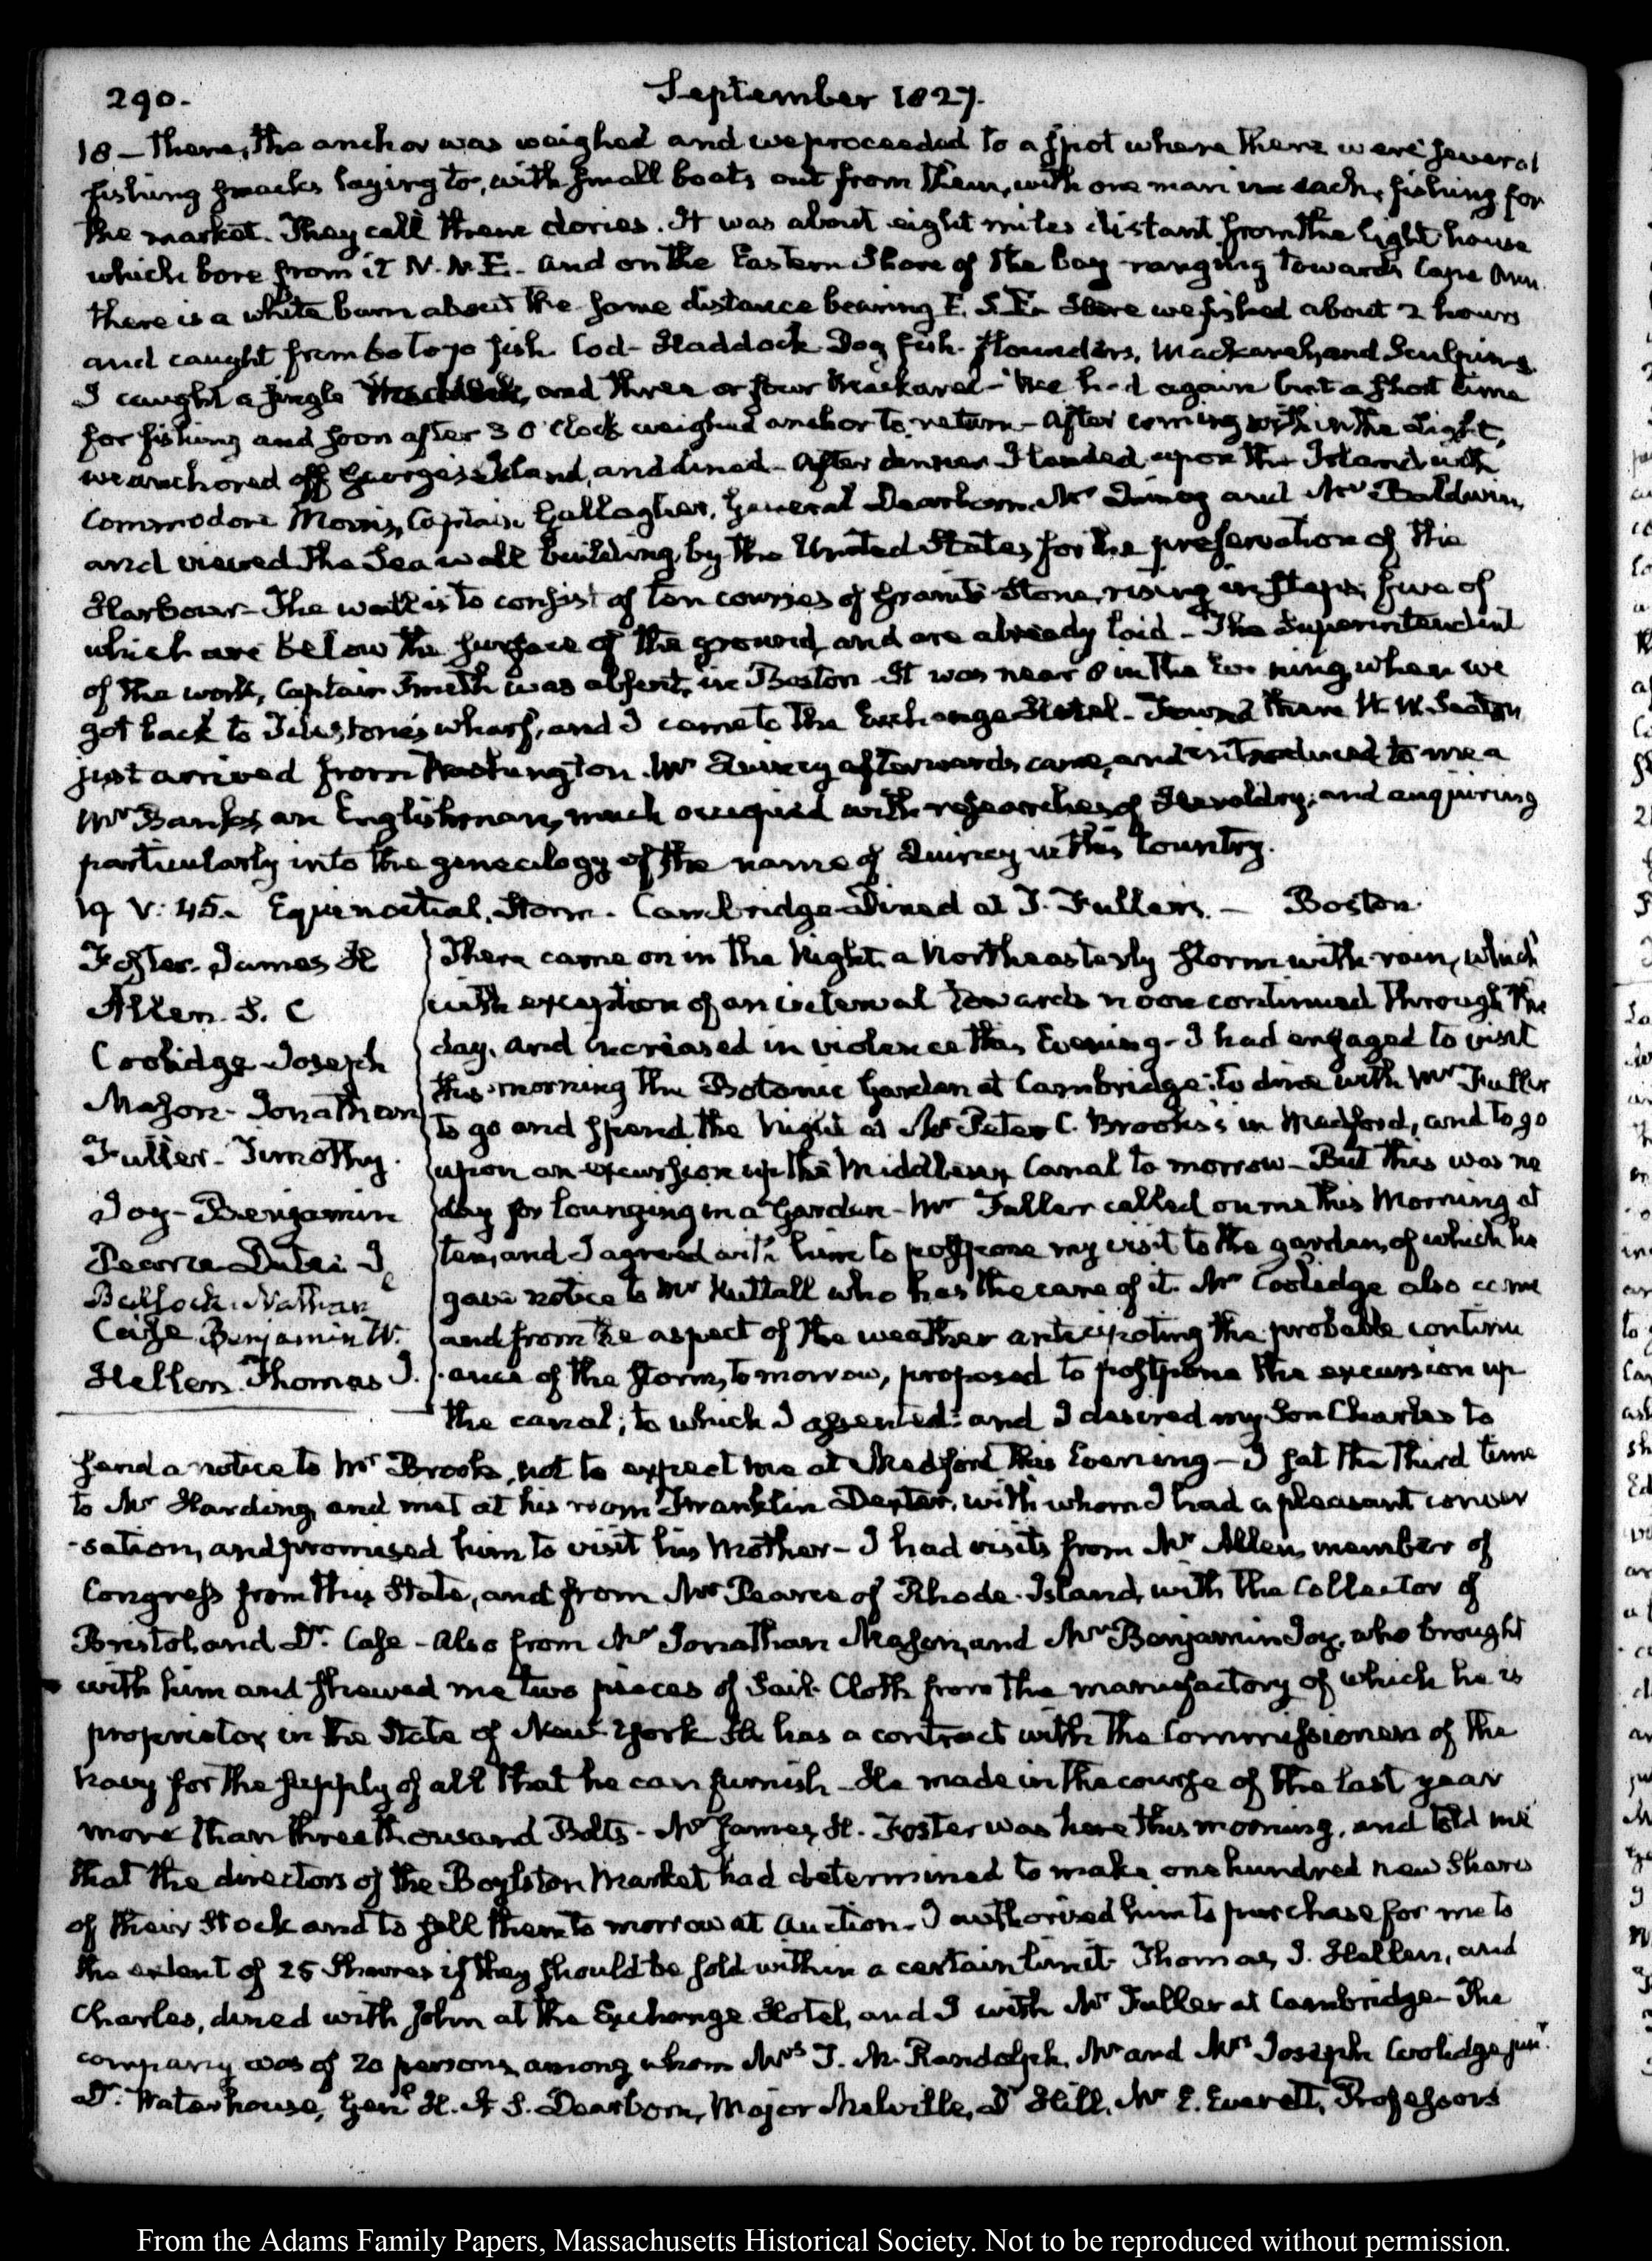 290.
September 1827.
18 — There, the anchor was weighed and we proceeded to a spot where there were several
fishing smacks laying to, with small boats out from them, with one man in each, fishing for
the market. They call them dories. It was about eight miles distant from the light house
which bore from it N.N.E. and on the Eastern Shore of the bay ranging towards Cape Ann
there is a white barn about the same distance bearing E.S.E. Here we fished about 2 hours
and caught from 60 to 70 fish. Cod- Haddock Dog fish- Flounders, Mackarel, and Sculpins.
I caught a single Haddock, and three or four Mackarel- We had again but a short time
for fishing and soon after 3 O'Clock weighed anchor to return- After coming within the Light,
we anchored off George's Island, and dined- After dinner I landed upon the Island with
Commodore Morris, Captain Gallagher, General Dearborn, Mr Quincy and Mr Baldwin,
and viewed the Sea wall building by the United States for the preservation of the
Harbour- The wall is to consist of ten courses of Granite Stone, rising in steps, five of
which are below the surface of the ground, and are already laid- The Superintendent
of the work, Captain Smith was absent, in Boston- It was near 8 in the Evening when we
got back to Tileston's wharf, and I came to the Exchange Hotel- Found there W. W. Seaton
just arrived from Washington. Mr Quincy afterwards came, and introduced to me a
Mr Banks, an Englishman, much occupied with researches of Heraldry; and enquiring
particularly into the genealogy of the name of Quincy in this Country.
19 V: 45. Equinoctial Storm. Cambridge- Dined at T. Fuller's. — Boston
Foster- James H
Allen. S. C
Coolidge- Joseph
Mason- Jonathan
Fuller- Timothy.
Joy- Benjamin
Pearce Dutee J
Bullock. Nathan
Case Benjamin W.
Hellen. Thomas J.
There came on in the Night a Northeasterly storm with rain, which
with exception of an interval towards noon continued through the
day, and increased in violence this Evening- I had engaged to visit
this morning the Botanic Garden at Cambridge; to dine with Mr Fuller
to go and spend the Night at Mr Peter C. Brooks's in Medford, and to go
upon an excursion up the Middlesex Canal to morrow- But this was no
day for lounging in a Garden- Mr Fuller called on me this Morning at
ten, and I agreed with him to postpone my visit to the garden, of which he
gave notice to Mr Nuttall who has the care of it. Mr Coolidge also came
and from the aspect of the weather anticipating the probable continu
-ance of the storm, to morrow, proposed to postpone the excursion up
the canal; to which I assented: and I desired my Son Charles to
send a notice to Mr Brooks, not to expect me at Medford this Evening- I sat the third time
to Mr Harding, and met at his room Franklin Dexter, with whom I had a pleasant conver
-sation, and promised him to visit his Mother- I had visits from Mr Allen, member of
Congress from this State, and from Mr Pearce of Rhode-Island, with the Collector of
Bristol, and Dr. Case- also from Mr Jonathan Mason, and Mr Benjamin Joy, who brought
with him and shewed me two pieces of Sail-Cloth from the manufactory of which he is
proprietor, in the State of New York He has a contract with the Commissioners of the
navy for the supply of all that he can furnish- He made in the course of the last year
more than three thousand Bolts- Mr James H. Foster was here this morning, and told me
that the directors of the Boylston Market had determined to make one hundred new shares
of their Stock and to sell them to morrow at auction- I authorised him to purchase for me to
the extent of 25 Shares if they should be sold within a certain limit- Thomas J. Hellen, and
Charles, dined with John at the Exchange Hotel, and I with Mr Fuller at Cambridge- The
company was of 20 persons, among whom Mrs T. M. Randolph, Mr and Mrs Joseph Coolidge junr.
Dr. Waterhouse, Genl H. A. S. Dearborn, Major Melville, Dr Hill, Mr E. Everett, Professors
From the Adams Family Papers, Massachusetts Historical Society. Not to be reproduced without permission.